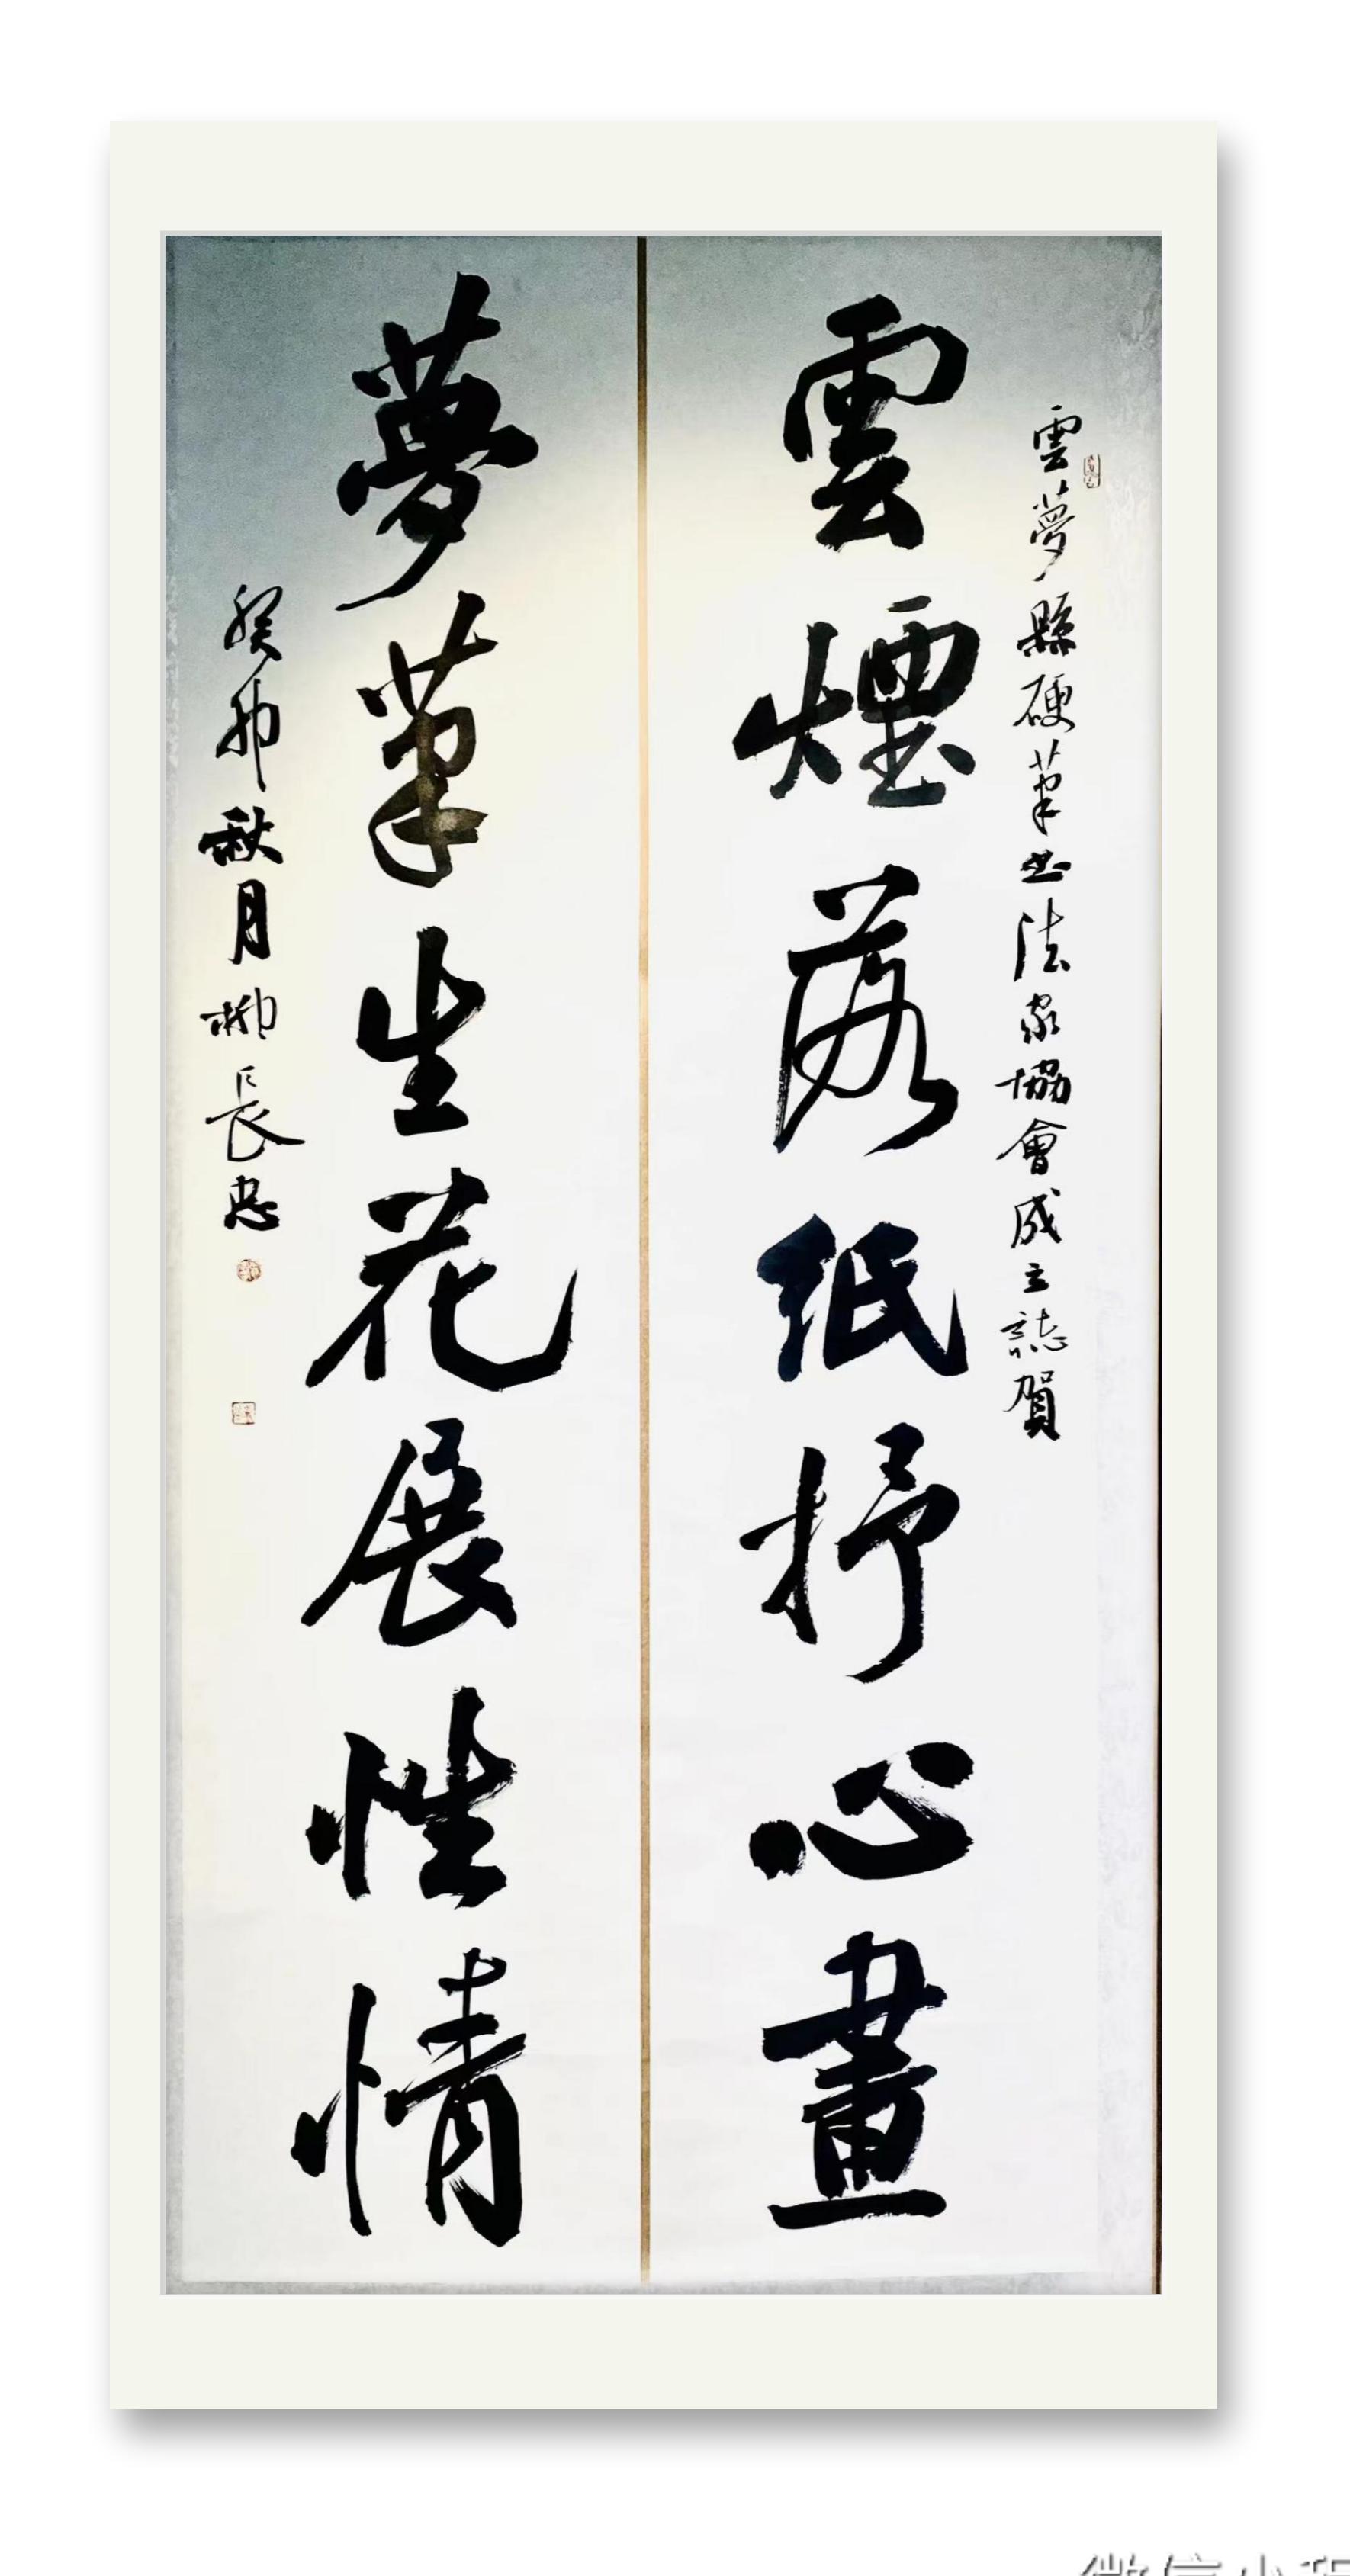 雲夢縣硬筆書法家協會成立誌賀
雲煙落紙抒心畫
夢筆生花展性情
癸卯秋月柳長忠
微信小程